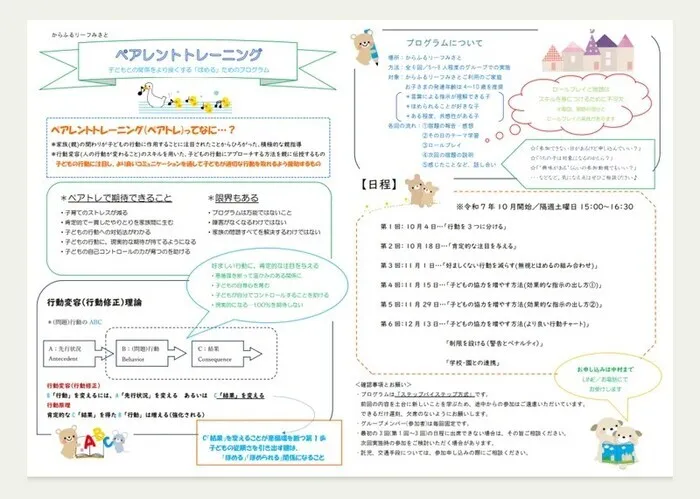 からふるリーフみさと
ペアレントトレーニング
子どもとの関係をより良くする「ほめる」ためのプログラム
ペアレントトレーニング(ペアトレ)ってなに…？
*家族(親)の関わりが子どもの行動に作用することに注目されたことからひろがった、積極的な親指導
*行動変容(人の行動が変わること)のスキルを用いた、子どもの行動にアプローチする方法を親に伝授するもの
子どもの行動に注目し、より良いコミュニケーションを通して子どもが適切な行動を取れるよう援助するもの
*ペアトレで期待できること
・子育てのストレスが減る
・肯定的で一貫したやりとりを家族間に生む
・子どもの行動への対処法がわかる
・子どもの行動に、現実的な期待が持てるようになる
・子どもの自己コントロールの力が育つのを助ける
*限界もある
・プログラムは万能ではないこと
・障害がなくなるわけではない
・家族の問題すべてを解決するわけではない
好ましい行動に、肯定的な注目を与える
・悪循環を断って温かみのある関係に
・子どもの自尊心を育む
・子どもが自分でコントロールすることを助ける
・現実的になる…100%を期待しない
行動変容(行動修正)理論
*(問題)行動の ABC
A：先行状況
Antecedent
B：(問題)行動
Behavior
C：結果
Consequence
行動変容(行動修正)
B「行動」を変えるには、A「先行状況」を変える あるいは C「結果」を変える
行動原理
肯定的な C「結果」を得た B「行動」は増える(強化される)
ABC
C「結果」を変えることが悪循環を断つ第1歩
子どもの従順さを引き出す鍵は、
「ほめる」「ほめられる」関係になること
プログラムについて
場所：からふるリーフみさと
方法：全6回/5~6人程度のグループでの実施
対象：からふるリーフみさとご利用のご家庭
お子さまの発達年齢は4~10歳を推奨
*言葉による指示が理解できる子
*ほめられることが好きな子
*ある程度、共感性がある子
各回の流れ：①宿題の報告・感想
②その日のテーマ学習
③ロールプレイ
④次回の宿題の説明
⑤感じたことなど、話し合い
ロールプレイと宿題は
スキルを身につけるために不可欠
※毎回、宿題の報告と
ロールプレイの実践があります
【日程】
※令和7年10月開始/隔週土曜日 15:00~16:30
第1回：10月4日…「行動を3つに分ける」
第2回：10月18日…「肯定的な注目を与える」
第3回：11月1日…「好ましくない行動を減らす(無視とほめるの組み合わせ)」
第4回：11月15日…「子どもの協力を増やす方法(効果的な指示の出し方①)」
第5回：11月29日…「子どもの協力を増やす方法(効果的な指示の出し方②)」
第6回：12月13日…「子どもの協力を増やす方法(より良い行動チャート)」
「制限を設ける(警告とペナルティ)」
「学校・園との連携」
<確認事項とお願い>
・プログラムは「ステップバイステップ方式」です。
前回の内容を土台に新しいことを学ぶため、途中からの参加はご遠慮いただいています。
できるだけ遅刻、欠席のないようにお願いします。
・グループメンバー(参加者)は毎回固定です。
・最初の3回(第1回~3回)の日程に出席できない場合は、その旨ご相談ください。
次回実施時の参加をご検討いただく場合があります。
・託児、交通手段については、参加申し込みの際にご相談ください。
お申し込みは中村まで
お受けします